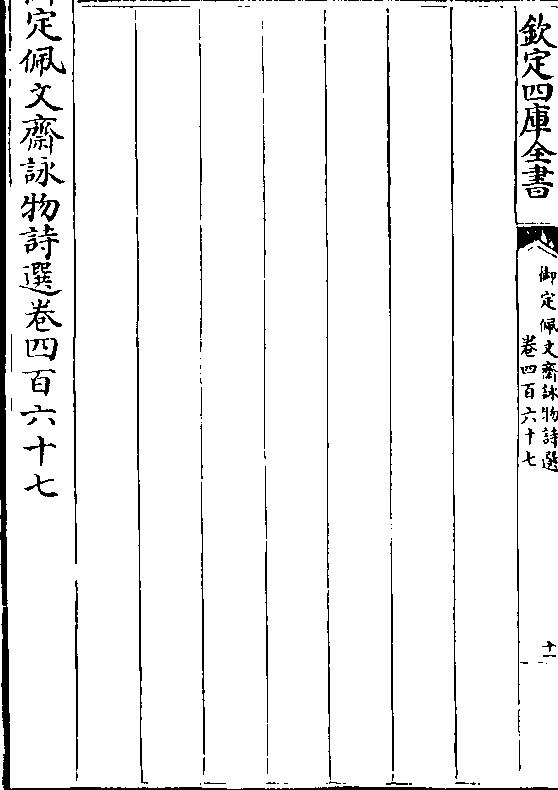 欽定四庫全書
御定佩文齋詠物詩選
卷四百六十七
十一
御定佩文齋詠物詩選卷四百六十七